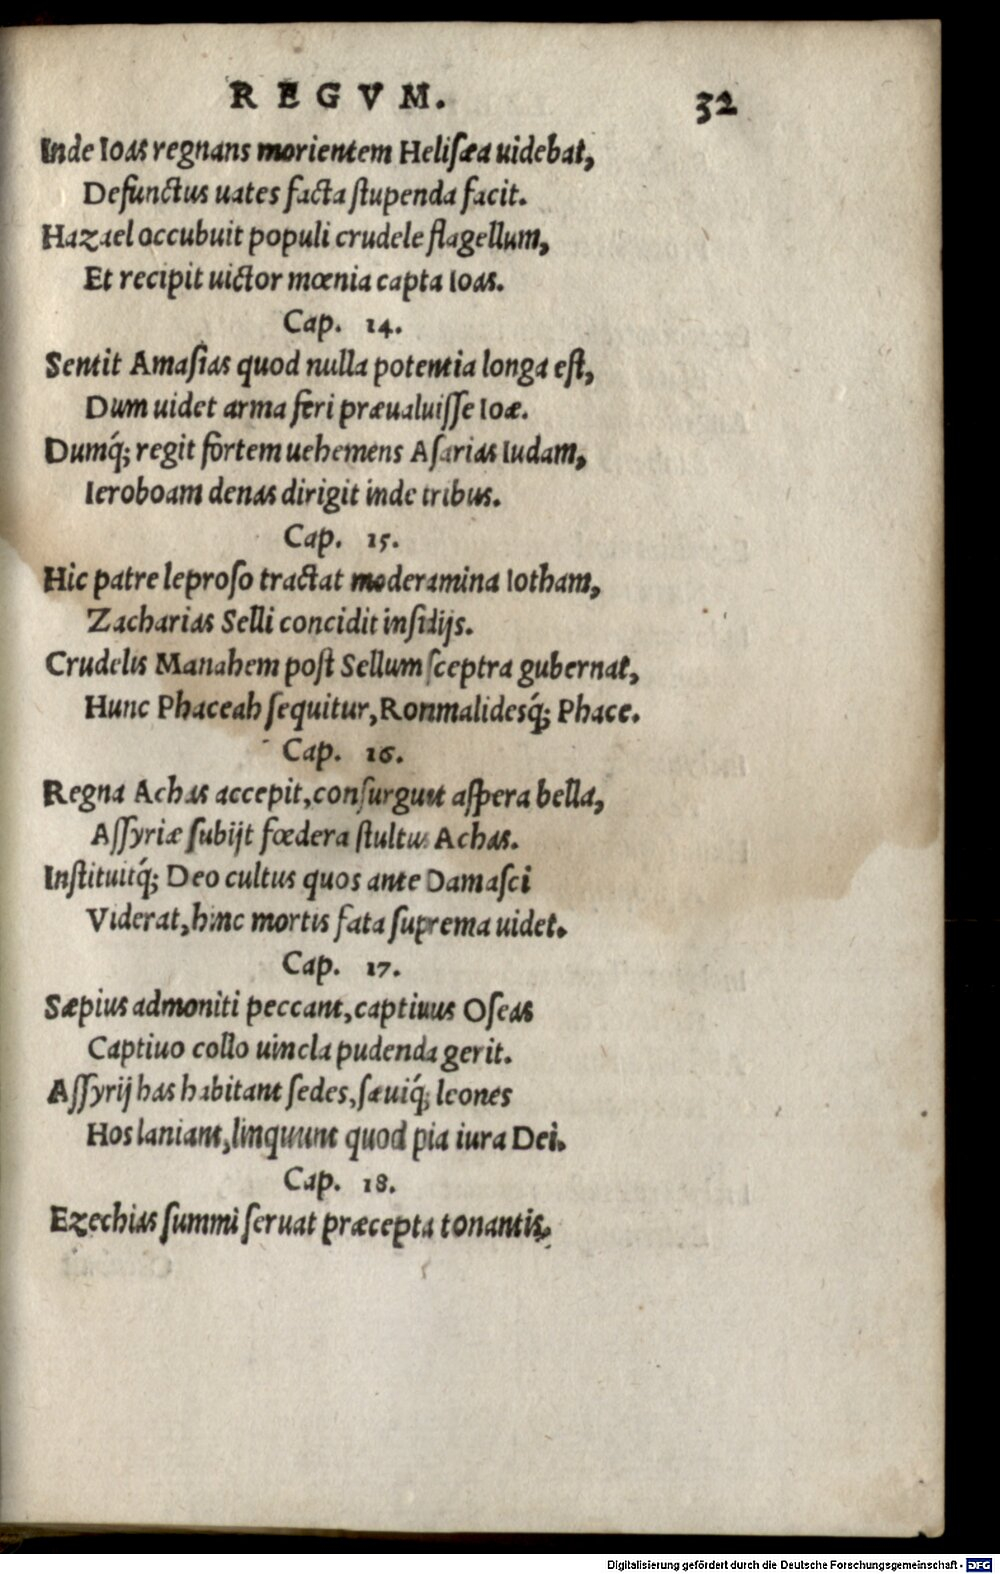 REGVM. 32
Inde Ioas regnans morientem Helisæa uidebat,
Defunctus uates facta stupenda facit.
Hazael occubuit populi crudele flagellum,
Et recipit uictor mœnia capta Ioas.
Cap. 14.
Sentit Amasias quod nulla potentia longa est,
Dum uidet arma feri præualuisse Ioæ.
Dumq́; regit fortem uehemens Asarias Iudam,
Ieroboam denas dirigit inde tribus.
Cap. 15.
Hic patre leproso tractat moderamina Iotham,
Zacharias Selli concidit insidijs.
Crudelis Manahem post Sellum sceptra gubernat,
Hunc Phaceah sequitur, Ronmalidesq́; Phace.
Cap. 16.
Regna Achas accepit, consurgunt aspera bella,
Assyriæ subijt fœdera stultus Achas.
Instituitq́; Deo cultus quos ante Damasci
Viderat, hinc mortis fata suprema uidet.
Cap. 17.
Sæpius admoniti peccant, captiuus Oseas
Captiuo collo uincla pudenda gerit.
Assyrij has habitant sedes, sæuiq́; leones
Hos laniant, linquunt quod pia iura Dei.
Cap. 18.
Ezechias summi seruat præcepta tonantis,
Digitalisierung gefördert durch die Deutsche Forschungsgemeinschaft - DFG